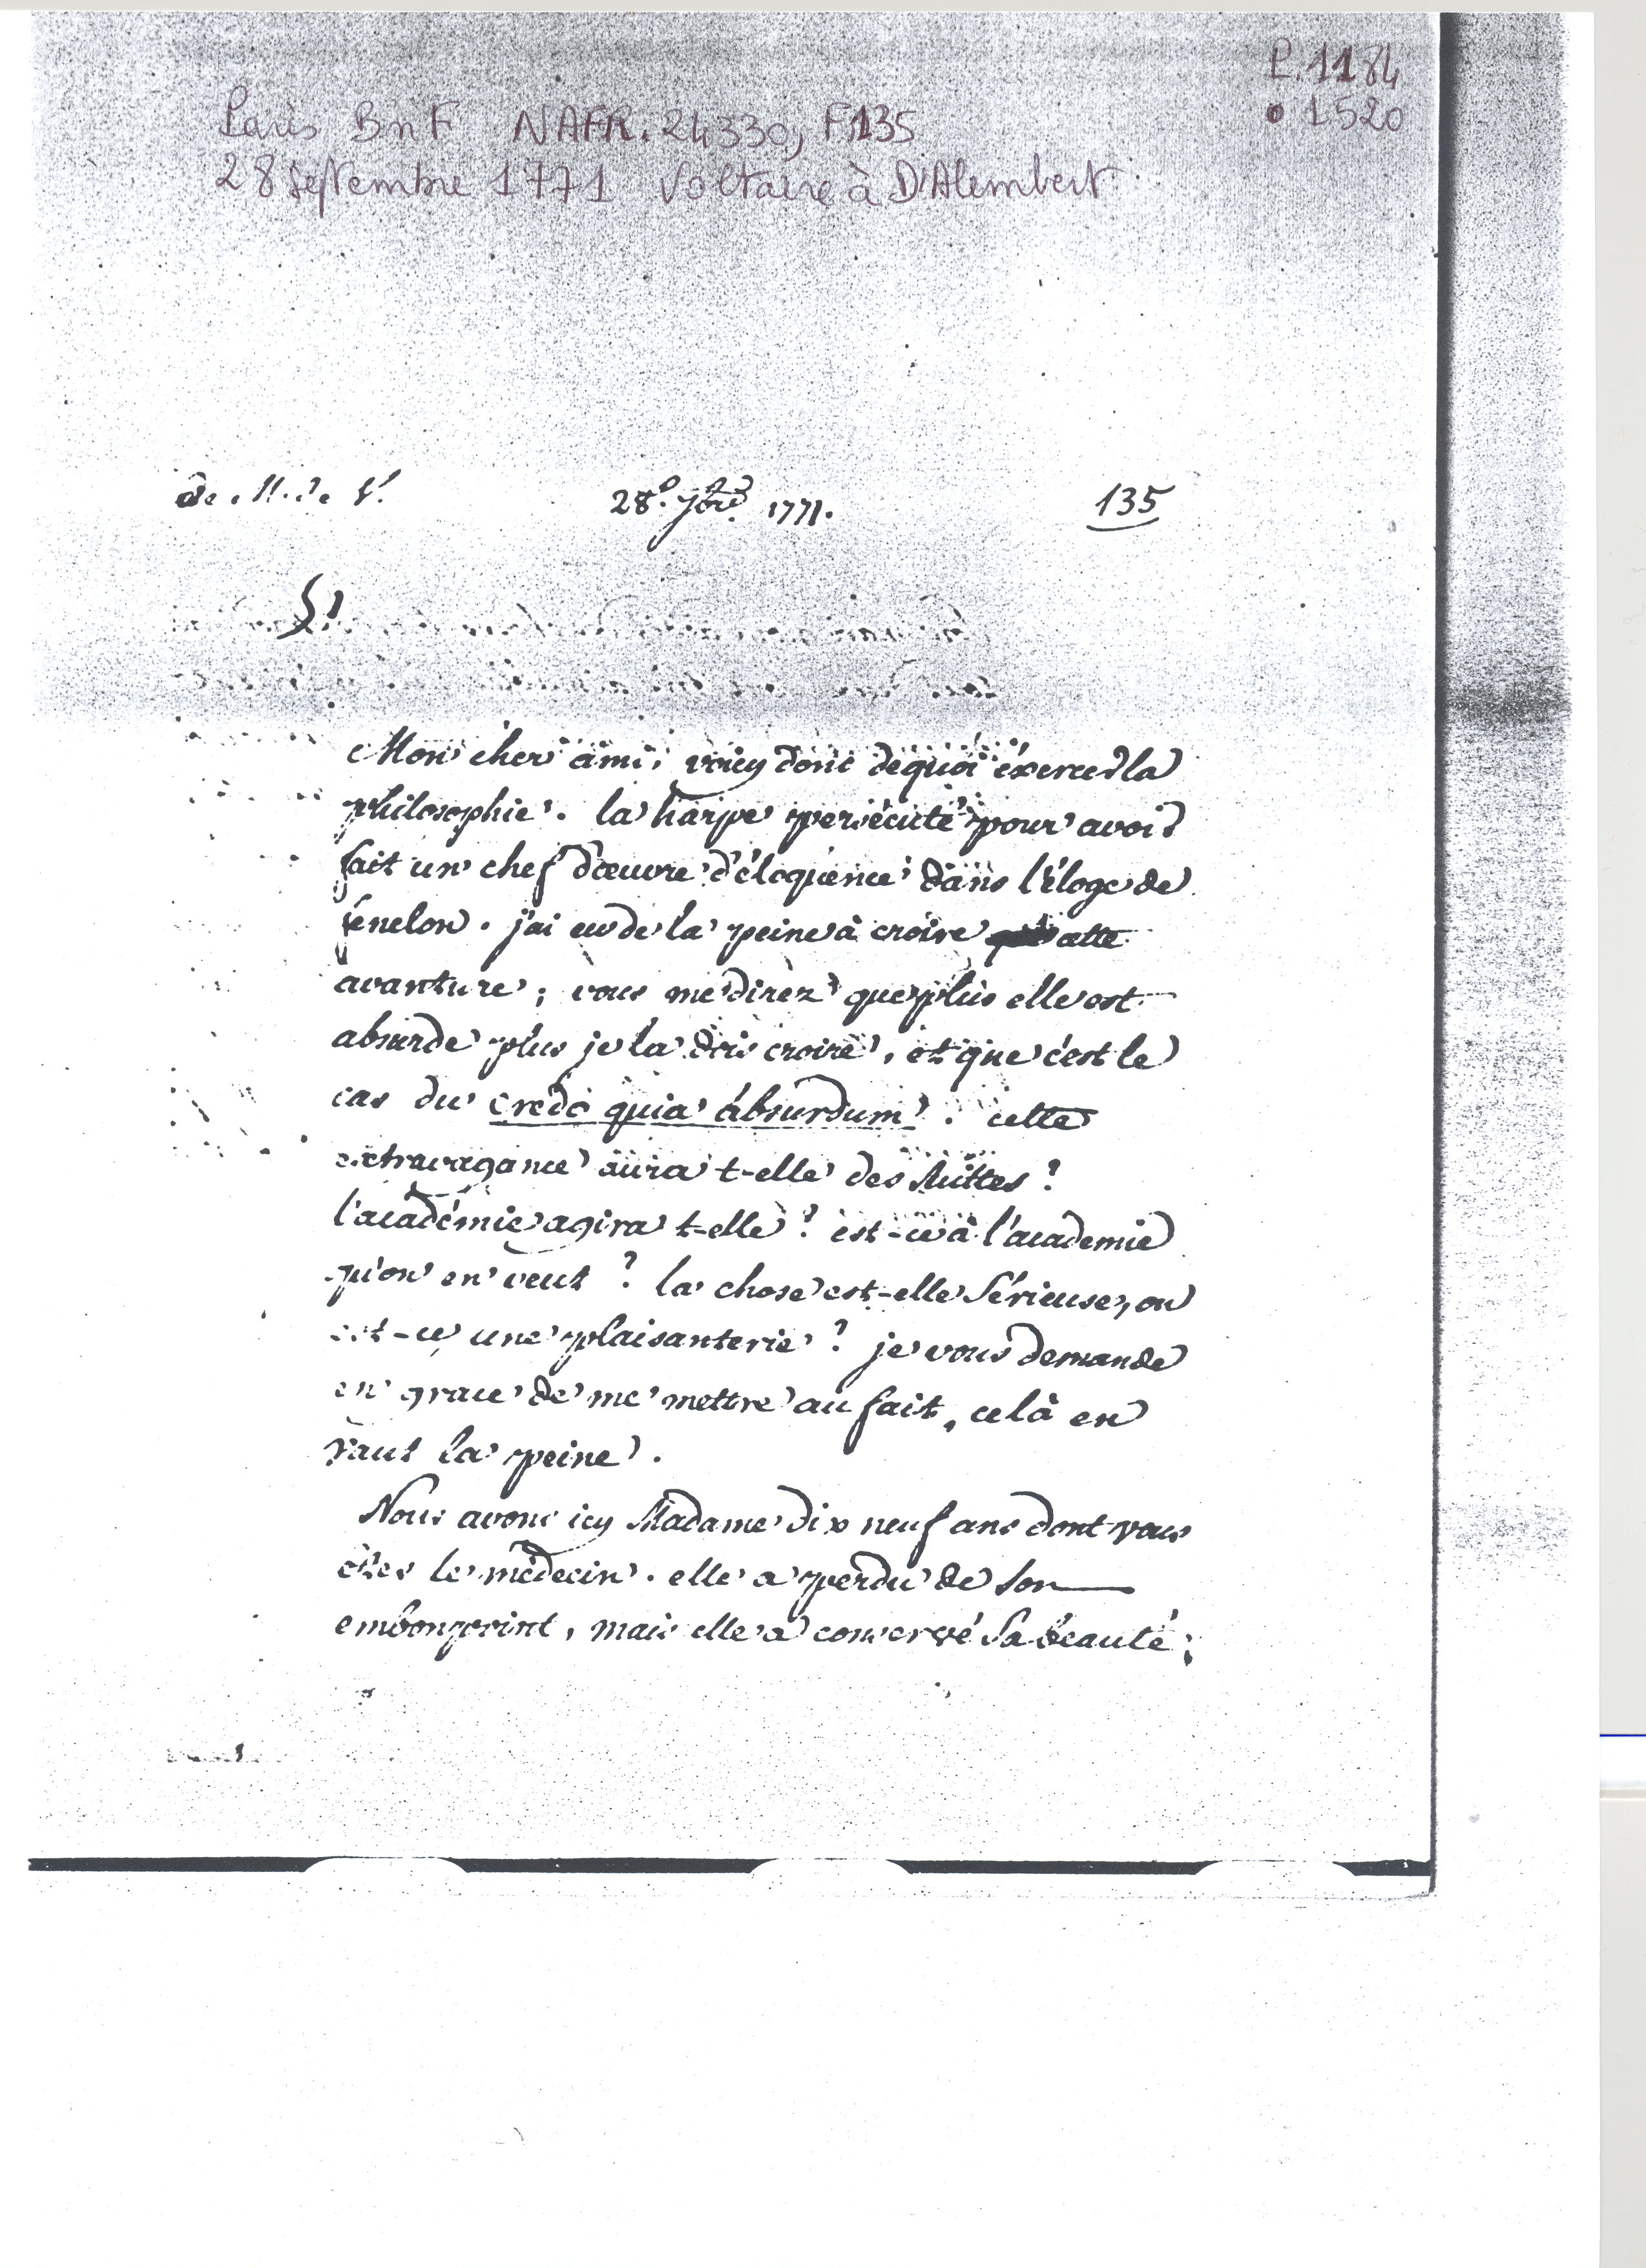 P. 1184
1520
Paris BnF NAFR. 24330, F.135
28 septembre 1771 Voltaire à D'Alembert
de M. de V.
28e. 7bre. 1771.
135
Mon cher ami, voicy donc dequoi éxercer la
philosophie. la harpe persécuté pour avoir
fait un chef d'œuvre d'éloquence dans l'éloge de
fénelon. j'ai eu de la peine à croire cette
avanture; vous me direz que plus elle est
absurde plus je la dois croire, et que c'est le
cas du credo quia absurdum. cette
extravagance aura t-elle des suittes?
l'académie agira t-elle? est-ce à l'academie
qu'on en veut? la chose est-elle sérieuse, ou
est-ce une plaisanterie? je vous demande
en grace de me mettre au fait, celà en
vaut la peine.
Nous avons icy Madame dix neuf ans dont vous
êtes le médecin. elle a perdu de son
embonpoint, mais elle a conservé sa beauté;